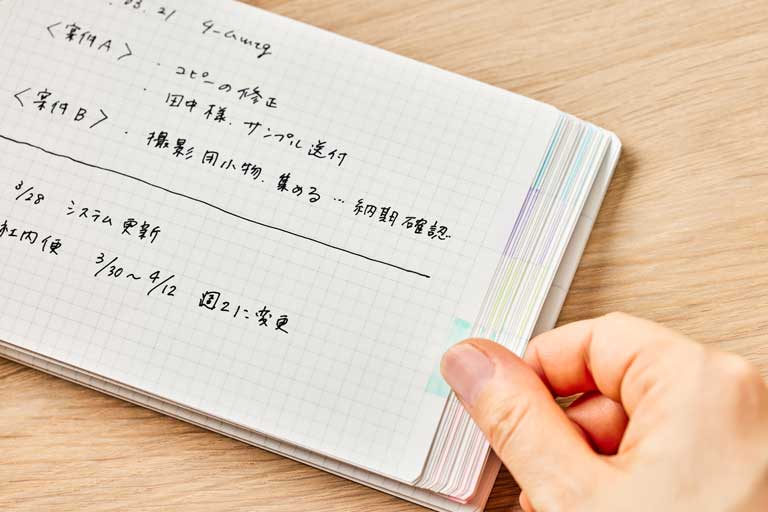 .03.21
<案件A> ・コピーの修正
・田中様.サンプル送付
<案件B> ・撮影用小物.集める…納期確認
3/28 システム更新
社内便 3/30〜4/12 週2に変更